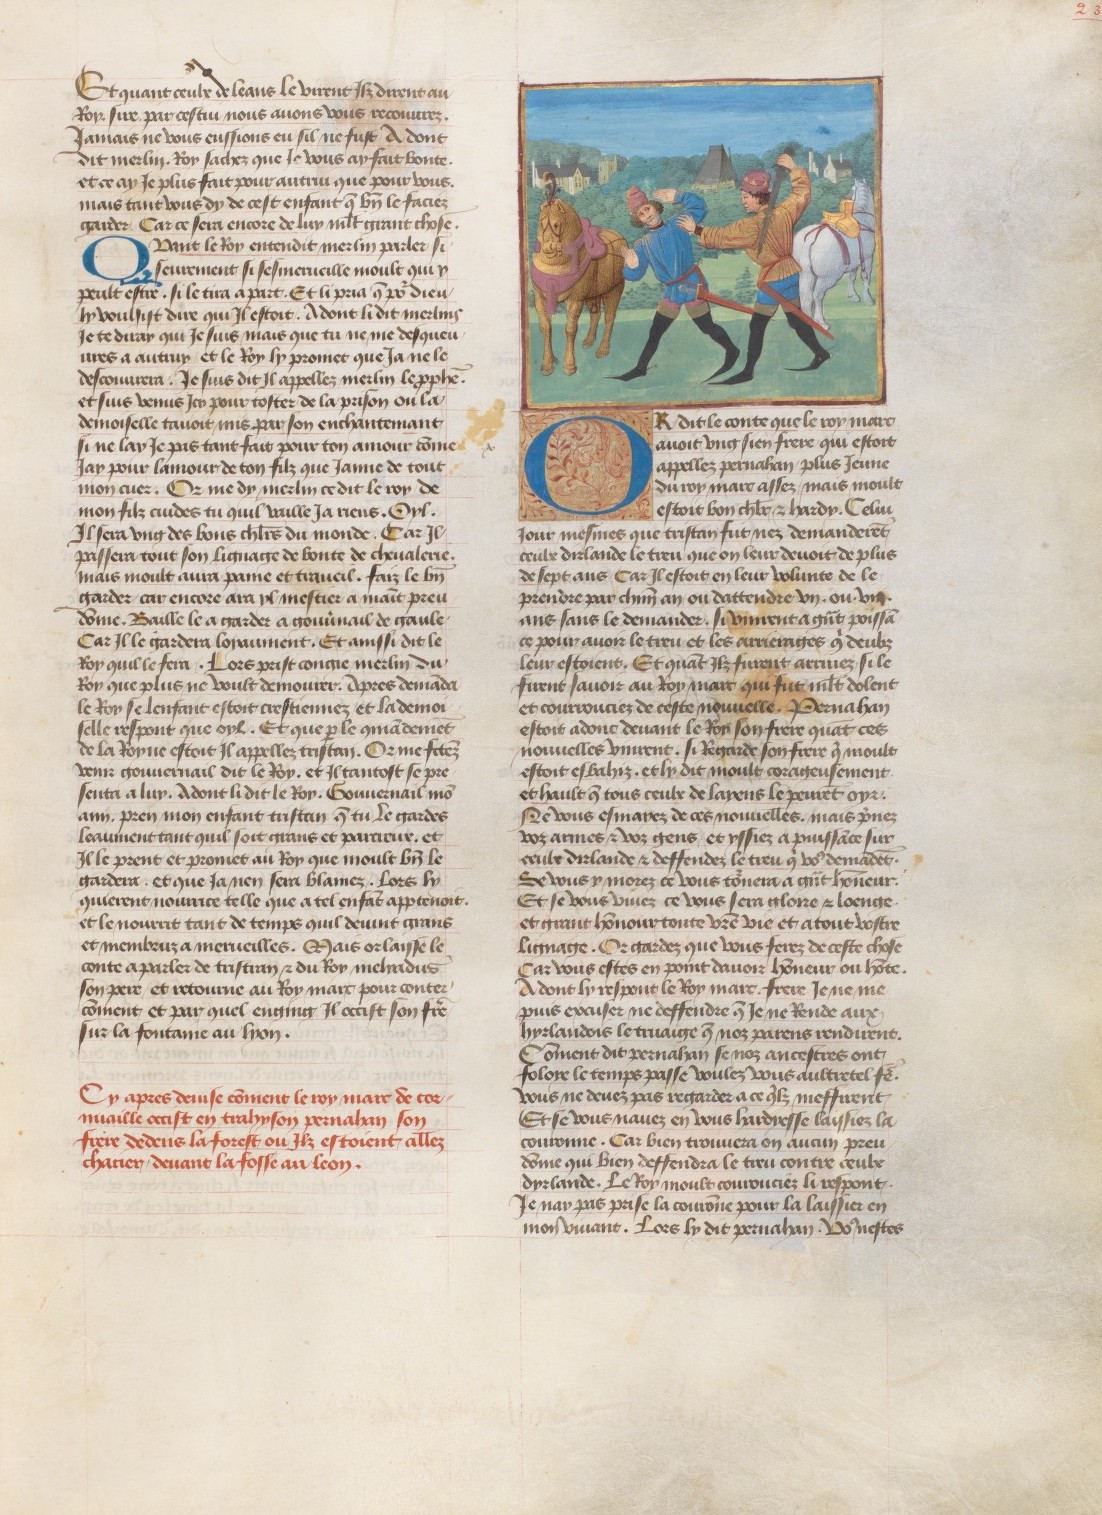 23
Et quant ceulx de leans le virent Ilz dirent au
Roy. sire par cestui nous auons vous recouurez.
Jamais ne vous eussions eu sil ne fust Adont
dit merlin. Roy sachez que Je vous ay fait bonte.
et ce ay Je plus fait pour autrui que pour vous.
mais tant vous dy de cest enfant q̄ bn̄ le faciez
garder. Car ce sera encore de luy mlt̄ grant chose.
Quant le Roy entendit merlin parler si
seurement si sesmerueille moult qui y
peult estre. si le tira a part. Et li pria q̄ po᷑ dieu
ly voulsist dire qui Il estoit. Adont li dit merlins
Je te diray qui Je suis mais que tu ne me descueu
ures a autruy et le Roy ly promet que Ja ne le
descouurera. Je suis dit Il appellez merlin le ꝓphē.
et suis venus Icy pour toster de la prison ou la
demoiselle tauoit mis par son enchantemant
si ne lay Je pas tant fait pour ton amour cōme
Jay pour lamour de ton filz que Jaime de tout
mon cuer. Or me dy merlin ce dit le roy de
mon filz cuides tu quil vaille Ja riens. Oyl.
Il sera vng des bons chlr̄s du monde. Car Il
passera tout son lignage de bonte de cheualerie.
mais moult aura paine et traueil. faiz le bn̄
garder car encore ara yl mestier a maīt preu
dōme. Baille le a garder a gou᷑nail de gaule
Car Il le gardera loyaument. Et aussi dit le
Roy quil le fera. Lors prist congie merlin du
Roy que plus ne voult demourer. Apres demāda
le Roy se lenfant estoit crestiennez et la demoi
selle respont que oyl. Et que ꝑ le gmādemēt
de la Royne estoit Il appellez tristan. Or me fetez
venir gouuernail dit le Roy. et Il tantost se pre
senta a luy. Adont li dit le Roy. Gouuernail mō
amy. pren mon enfant tristan q̄ tu le gardes
leaument tant quil soit grans et parcreux. et
Il le prent et promet au Roy que moult bn̄ le
gardera. et que Ja nen sera blamez. Lors ly
quierent nourrice telle que a tel enfāt appetenoit.
et le nourrit tant de temps quil deuint grans
et membruz a merueilles. Mais or laisse le
conte a parler de tristan ⁊ du Roy melyadus
son pere, et retourne au Roy marc pour conter
cōment et par quel enging Il occist son fre᷑
sur la fontaine au lyon.
Cy apres deuise cōment le roy marc de cor
nuaille occist en trahyson pernahan son
frere dedens la forest ou Ilz estoient allez
chacier, deuant la fosse au leon.
OR dit le conte que le roy marc
auoit vng sien frere qui estoit
appellez pernahan plus Jeune
du roy marc assez, mais moult
estoit bon chlr̄ ⁊ hardy. Celui
Jour mesmes que tristan fut nez demanderēt
ceulx dirlande le treu que on leur deuoit de plus
de sept ans Car Il estoit en leur volunte de le
prendre par chūn an ou dattendre vi. ou. vii.
ans sans le demander. si vinrent a gn̄t poissā
ce pour auoir le treu et les arrierages q̄ deubz
leur estoient. Et quāt Ilz furent arriuez si le
firent sauoir au Roy marc qui fut mlt̄ dolent
et courrouciez de ceste nouuelle. Pernahan
estoit adonc deuant le Roy son frere quāt ces
nouuelles vinrent. si Regarde son frere q̄ moult
estoit esbahiz. et ly dit moult corageusement
et hault q̄ tous ceulx de layens le peurēt oyr.
Ne vous esmayez de ces nouuelles. mais p᷑nez
voz armes ⁊ voz gens et yssiez a puissāce sur
ceulx dirlande ⁊ deffendez le treu q̄ vo᷒ demādēt.
Se vous y morez ce vous to᷑nera a gn̄t hōneur.
Et se vous viuez ce vous sera gloire ⁊ loenge
et grant hōnour toute vr̄e vie et a tout vostre
lignage. Or gardez que vous ferez de ceste chose
Car vous estes en point dauoir hōneur ou hōte.
Adont ly respont le Roy marc. frere Je ne me
puis excuser ne deffendre q̄ Je ne Rende aux
hyrlandois le truaige q̄ noz parens rendirent.
Cōment dit pernahan se noz ancestres ont
foloye le temps passe voulez vous aultretel fē.
vous ne deuez pas regarder a ce q̄lz meffirent
Et se vous nauez en vous hardiesse laissiez la
couronne. Car bien trouuera on aucun preu
dōme qui bien deffendra le treu contre ceulx
dyrlande. Le Roy moult courouciez li respont.
Je nay pas prise la courōne pour la laissier en
mon viuant. Lors ly dit pernahan. Vo᷒ nestes